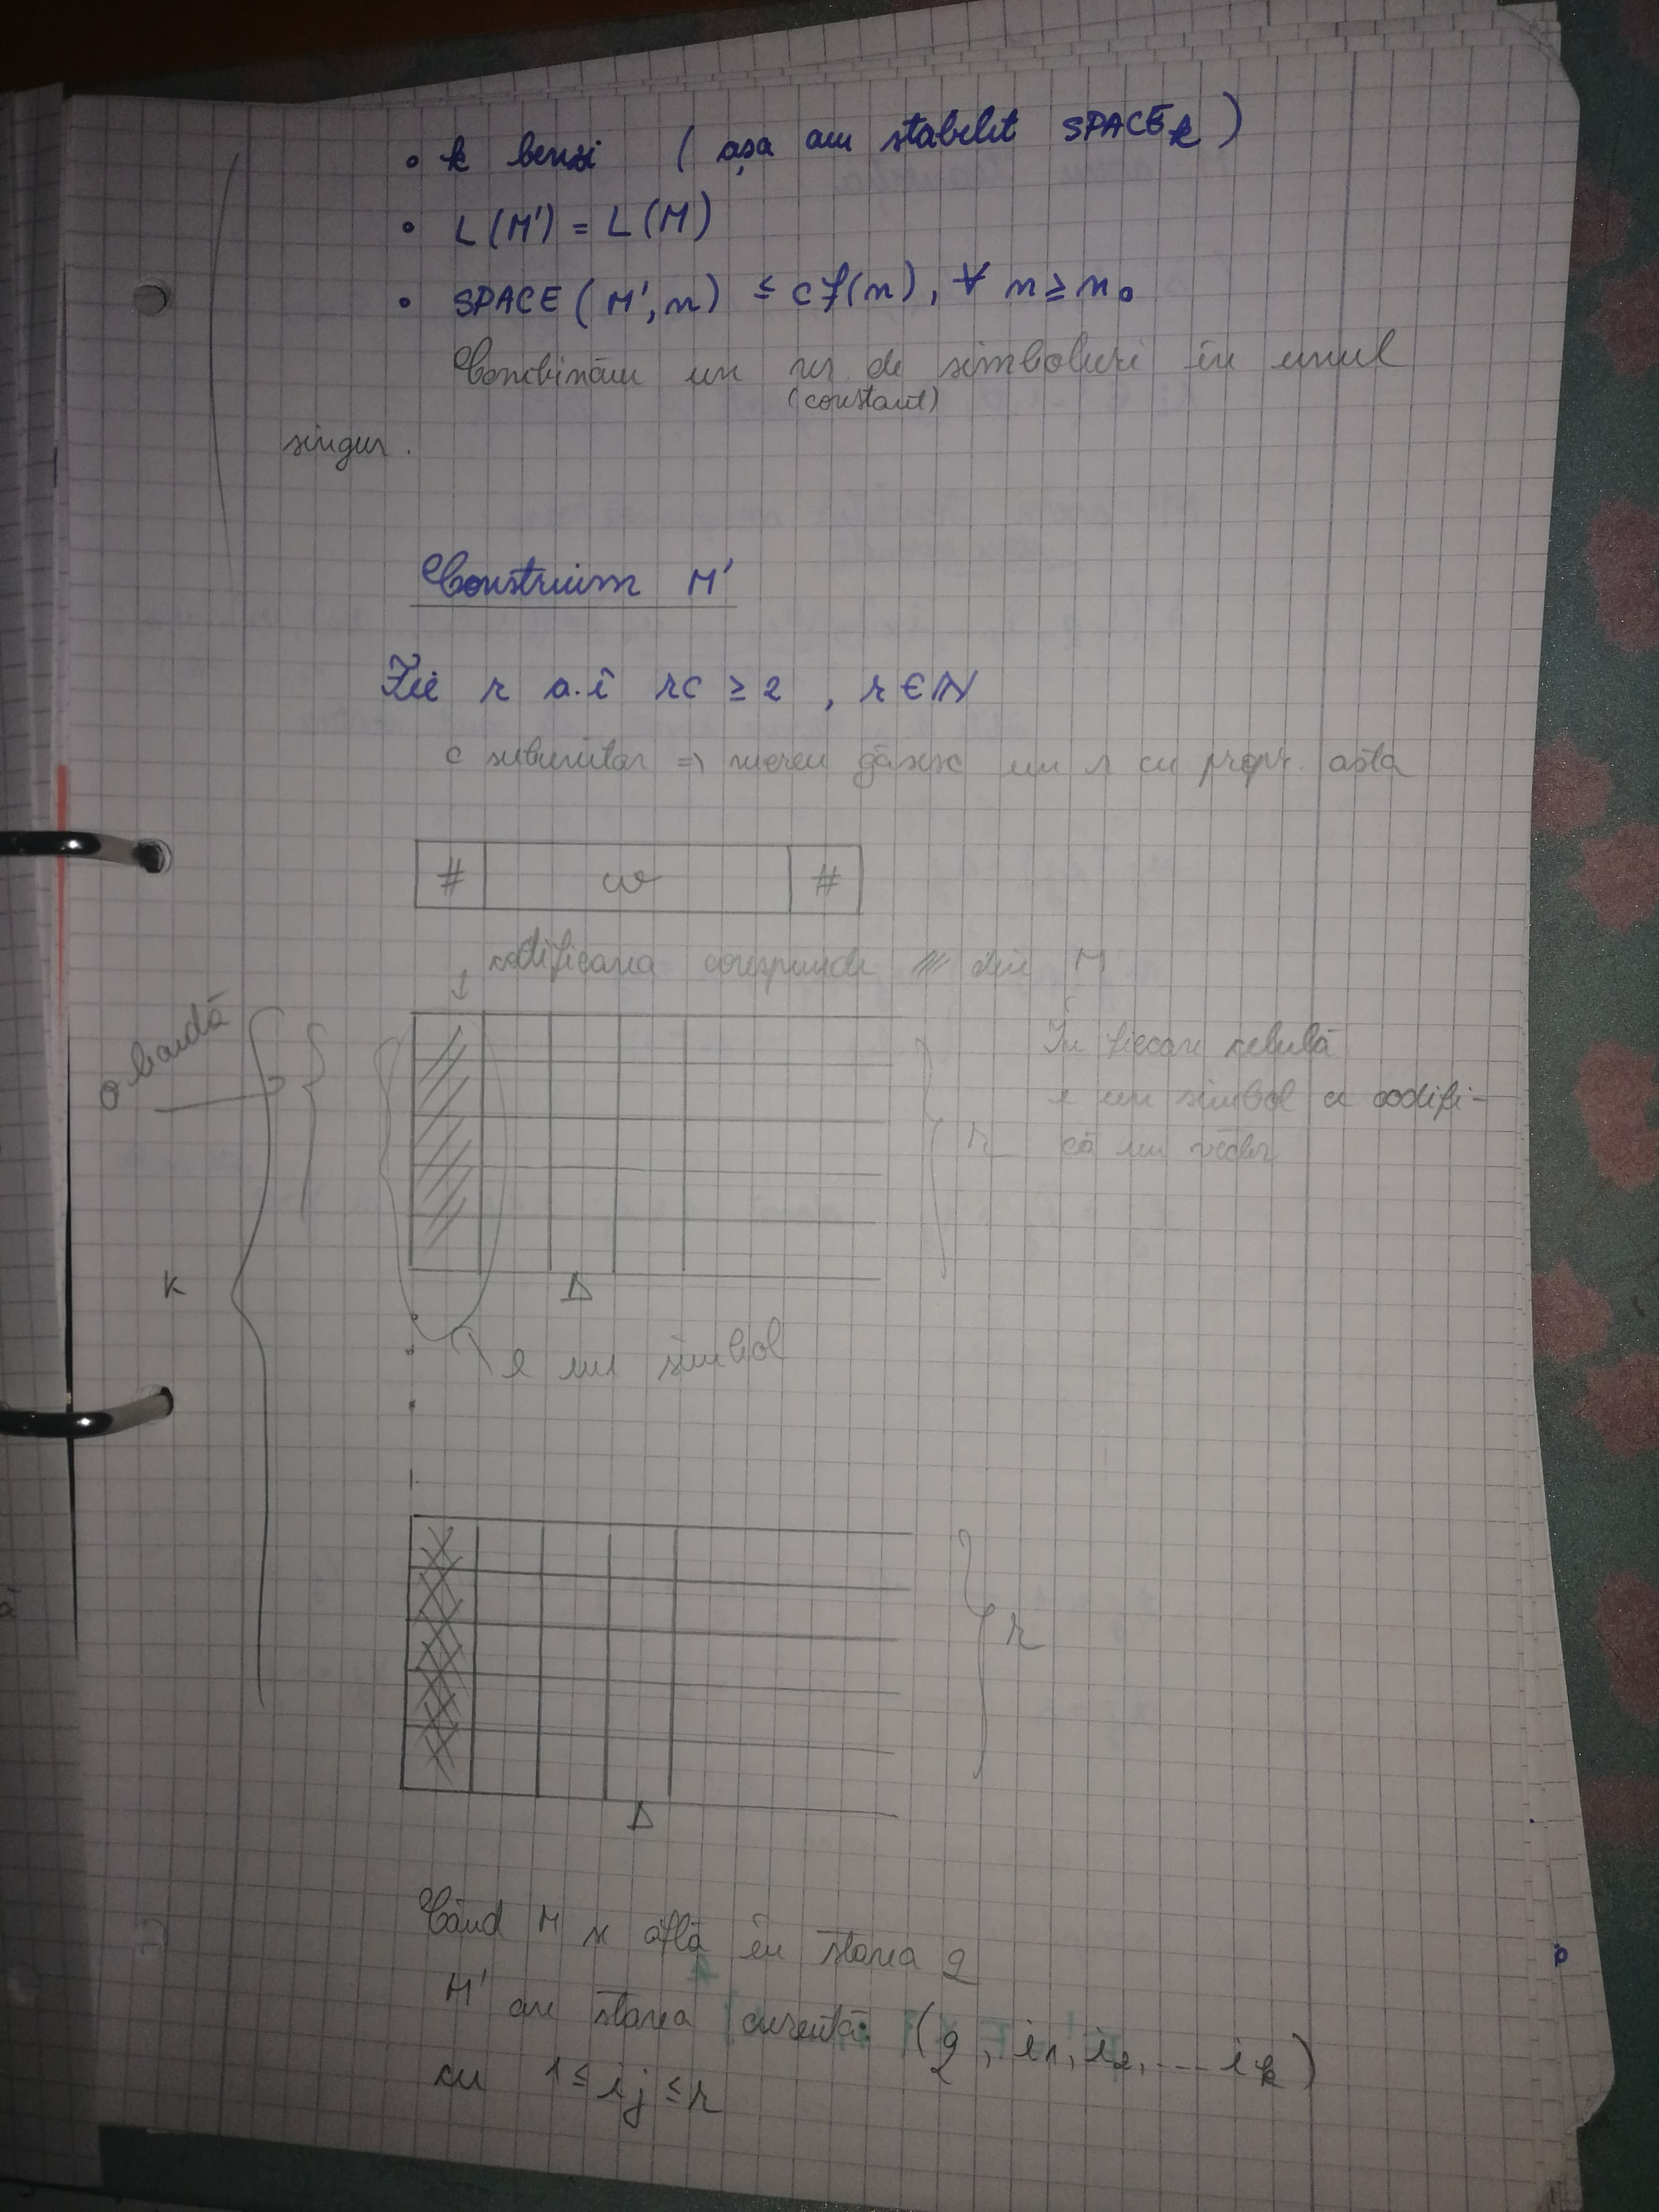 • k benzi ( așa am stabilit SPACE k )
• L(M') = L(M)
• SPACE (M', n) ≤ c f(n), ∀ n ≥ n₀
Combinăm un nr. de simboluri în unul
(constant)
singur.
Construim M'
Fie r a.î rc ≥ 2 , r ∈ ℕ
c subunitar => mereu găsesc un r cu propr. asta
# w #
codificarea corespunde din M
o bandă
În fiecare celulă
e un simbol ce codifi-
că un vector
r
k
Δ
e un simbol
r
Δ
Când M se află în starea q
M' are starea curentă: (q, i₁, i₂, ... i k)
cu 1 ≤ ij ≤ r